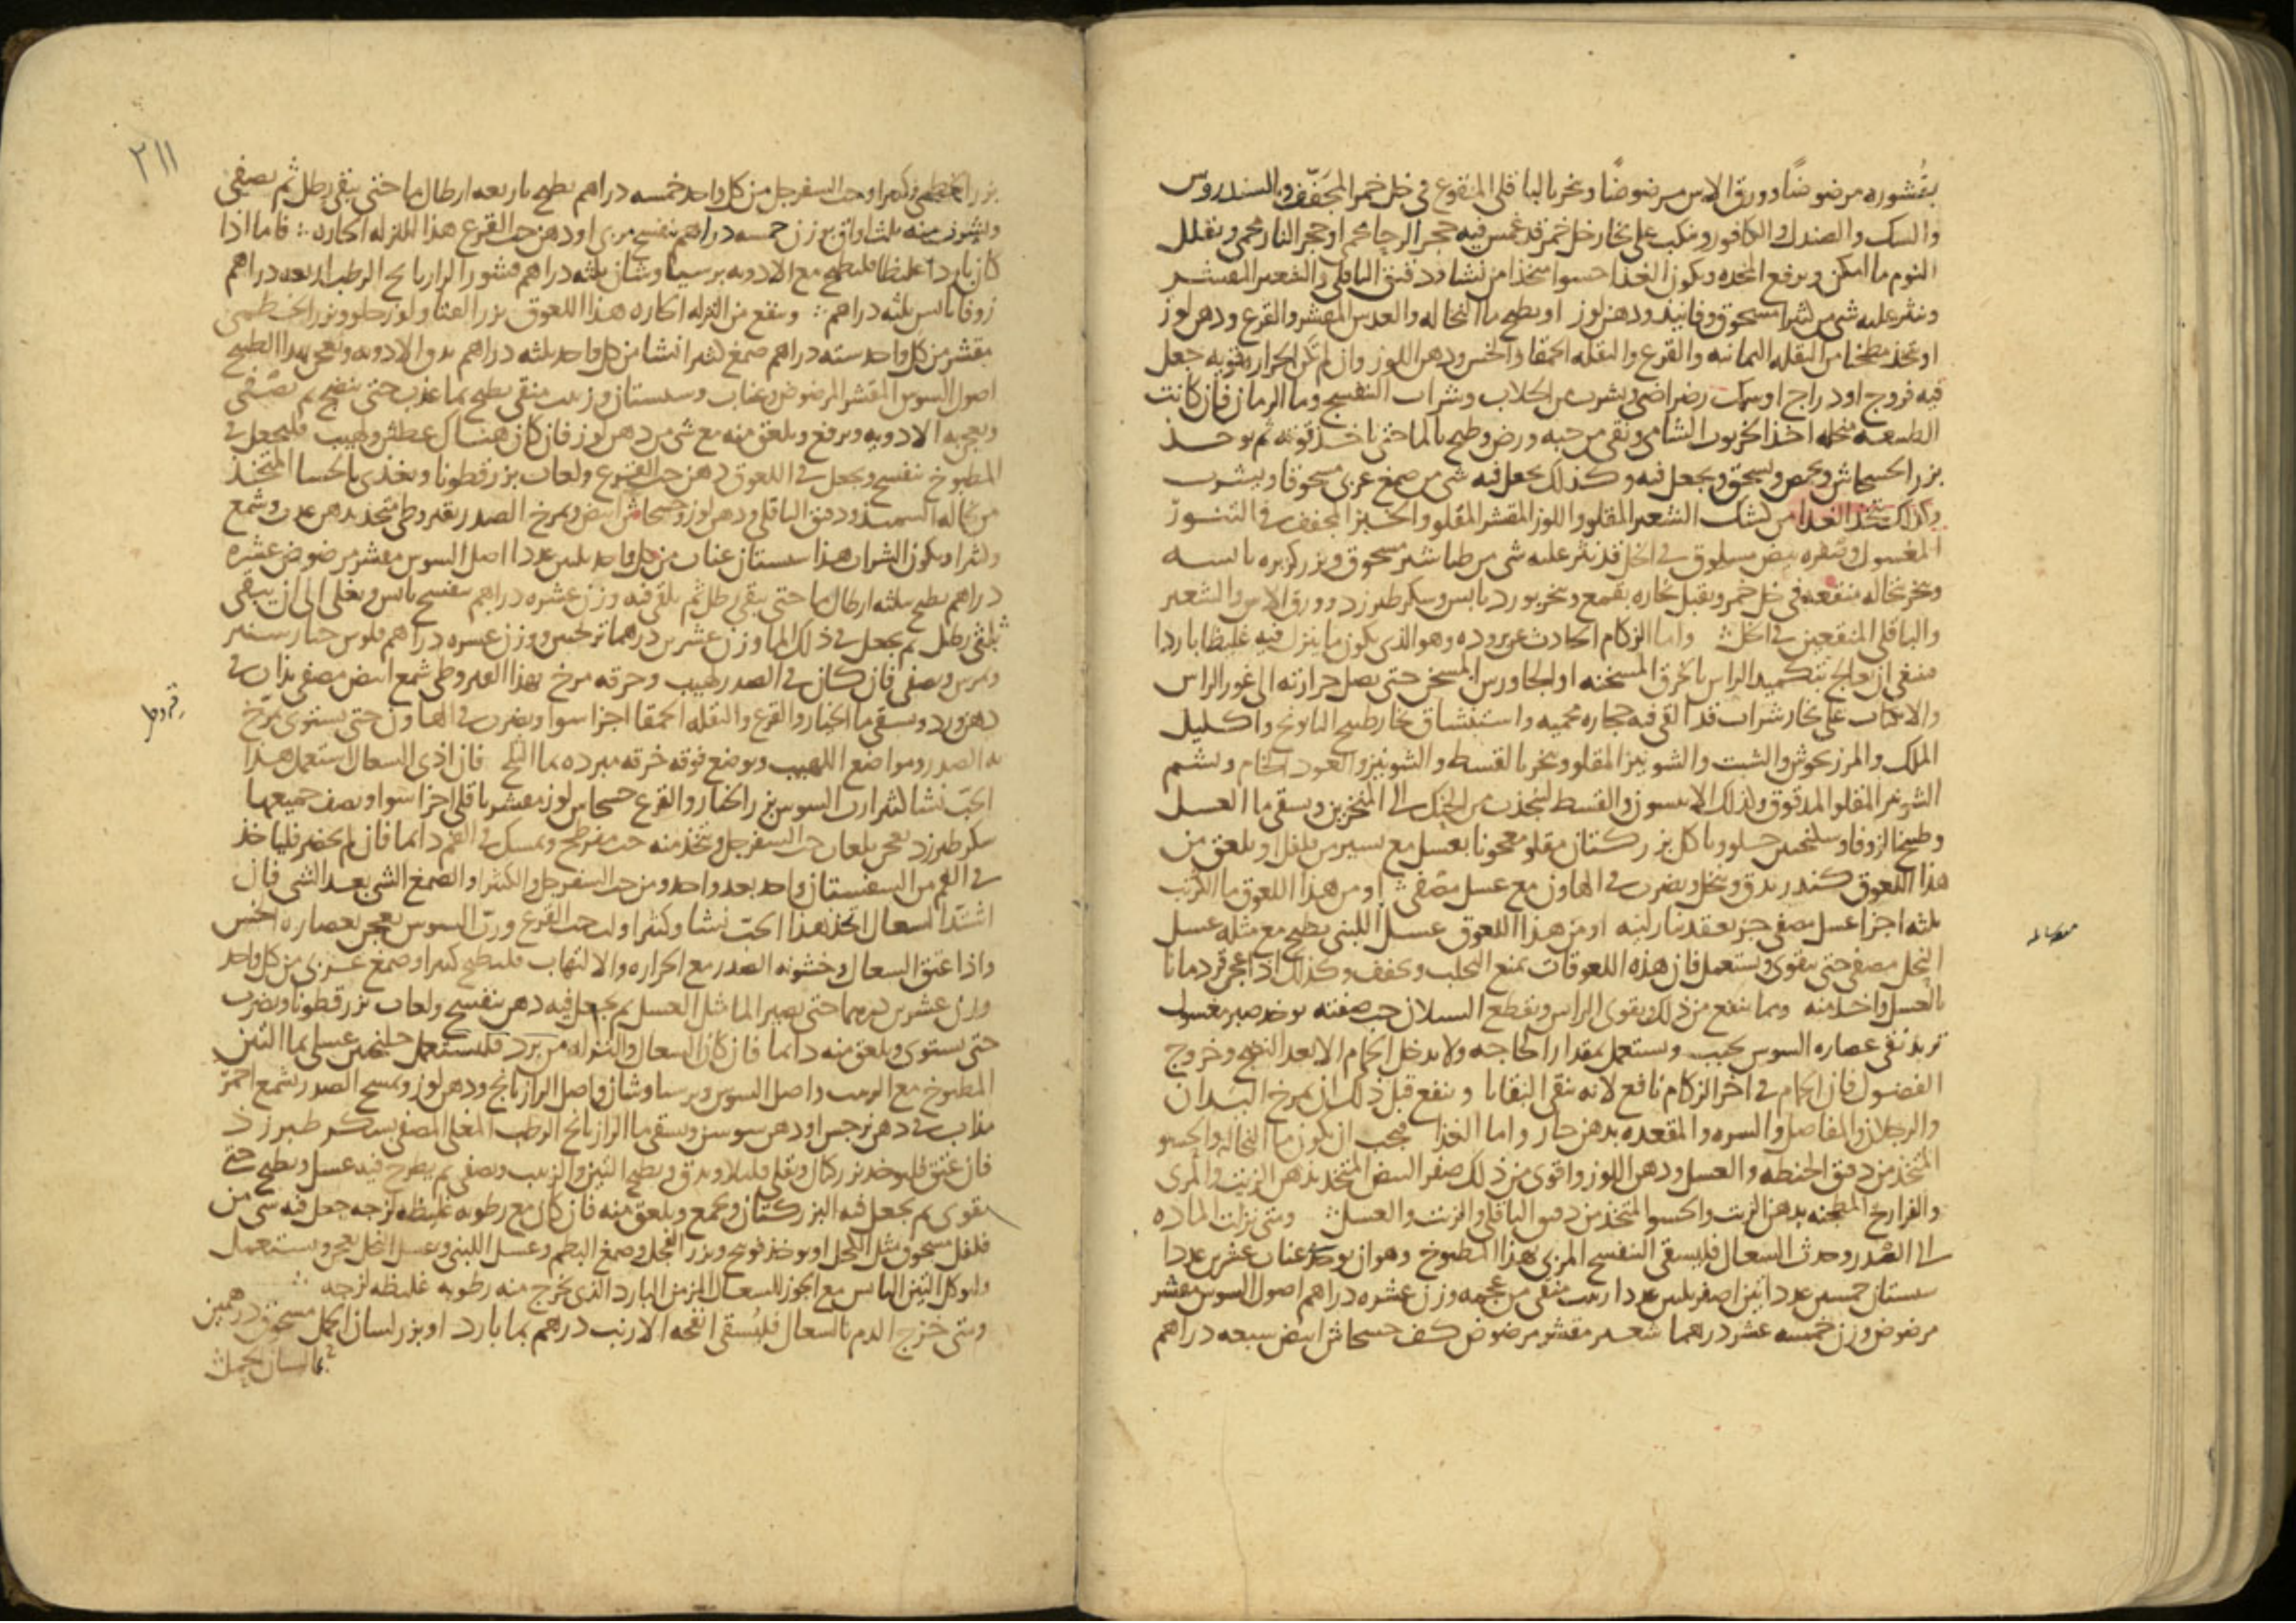 بقشوره مرضوضًا وورق الاس مرضوضًا وبخر بالباقلى المنقوع في خل خمر المجفف والسندروس
والسك والصندل والكافور وينكب على بخار خل خمر قد غمس فيه حجر الرحا محمى او حجر النار محمى ويقلل
النوم ما امكن ويرفع المخده ويكون الغذا حسوا متخذا من نشا ودقيق الباقلى والشعير المقشر
وينثر عليه شى من كثيرا مسحوق وفانيد ودهن لوز او يطبخ ما النخاله والعدس المقشر والقرع ودهن لوز
او يتخذ من البقله اليمانيه والقرع والبقله الحمقا والخس ودهن اللوز وان لم تكن الحراره قويه جعل
فيه فروج او دراج او سمك رضراضى ويشرب من الجلاب وشراب البنفسج وما الرمان فان كانت
الطبيعه منحله اخذ الخرنوب الشامى ونقى من حبه ورض وطبخ بالما حتى ياخذ قوته ثم يوخذ
بزر الخشخاش ويحمص ويسحق ويجعل فيه وكذلك يجعل فيه شى من صمغ عربى مسحوقا ويشرب
وكذلك يتخذ الغذا من كشك الشعير المقلو واللوز المقشر المقلو والخبز المجفف في التنور
المغسول وصفره بيض مسلوق في الخل قد نثر عليه شى من طباشير مسحوق وبزر كزبره يابسه
وبخر نخاله منقعه في خل خمر ويقبل بخاره بقمع وبخر بورد يابس وسكر طبرزد وورق الاس والشعير
والباقلى المنقعين في الخل واما الزكام الحادث عن بروده وهو الذى يكون ما ينزل فيه غليظا باردا
فينبغى ان يعالج بتكميد الراس بالخرق المسخنه او الجاورس المسخن حتى يصل حرارته الى غور الراس
والانكباب على بخار شراب قد القى فيه حجاره محميه واستنشاق بخار طبيخ البابونج واكليل
الملك والمرزنجوش والشبت والشونيز المقلو وبخر بالقسط والشونيز والعود الخام ويشم
الشونيز المقلو المدقوق وكذلك الانيسون والقسط لينجذب من الحنك الى المنخرين ويسقى ما العسل
وطبيخ الزوفا وسكنجبين حلو وياكل بزر كتان مقلو معجونا بعسل مع يسير من فلفل او يلعق من
هذا اللعوق كندر يدق وينخل ويضرب في الهاون مع عسل مصفى او من هذا اللعوق ما الكرنب
ثلثه اجزا عسل مصفى جز يعقد بنار لينه او من هذا اللعوق عسل اللبنى يطبخ مع مثله عسل
النحل مصفى حتى يقوى ويستعمل فان هذه اللعوقات تمنع التحلب وتخفف وكذلك اذا عجن قردمانا
بالعسل واخذ منه ومما ينفع من ذلك ويقوى الراس ويقطع السيلان حب صفته يوخذ صبر مغسول
تربد نقى عصاره السوس يحبب ويستعمل بمقدار الحاجه ولا يدخل الحمام الا بعد النضج وخروج
الفضول فان الحمام في اخر الزكام نافع لانه ينقى البقايا وينفع قبل ذلك ان يمرخ اليدان
والرجلان والمفاصل والسره والمقعده بدهن حار واما الغذا فيجب ان يكون ما النخاله والحسو
المتخذ من دقيق الحنطه والعسل ودهن اللوز واقوى من ذلك صفر البيض المتخذ بدهن الزيت والمرى
والفراريج المطجنه بدهن الزيت والحسو المتخذ من دقيق الباقلى والزيت والعسل ومتى نزلت الماده
الى الصدر وحدث السعال فليسقى البنفسج المربى بهذا المطبوخ وهو ان يوخذ عناب عشرين عددا
سبستان خمسين عددا تين اصفر ثلثين عددا زبيب منقى من عجمه وزن عشره دراهم اصول السوس مقشر
مرضوض وزن خمسه عشر درهما شعير مقشر مرضوض كف خشخاش ابيض سبعه دراهم
٢١١
بزر الخطمى وكثيرا وحب السفرجل من كل واحد خمسه دراهم يطبخ باربعه ارطال ما حتى يبقى رطل ثم يصفى
ويشرب منه ثلث اواق بوزن خمسه دراهم بنفسج مربى او دهن حب القرع هذا للنزله الحاره فاما اذا
كان باردا غليظا فليطبخ مع الادويه برسياوشان ثلثه دراهم قشور الرازيانج الرطب اربعه دراهم
زوفا يابس ثلثه دراهم وينفع من النزله الحاره هذا اللعوق بزر القثا ولوز حلو وبزر الخطمى
مقشر من كل واحد سته دراهم صمغ كثيرا نشا من كل واحد ثلثه دراهم يدق الادويه ويعجن بهذا الطبيخ
اصول السوس المقشر المرضوض وعناب وسبستان وزبيب منقى يطبخ بما عذب حتى ينضج ثم يصفى
ويعجن به الادويه ويرفع ويلعق منه مع شى من دهن لوز فان كان هناك عطش ولهيب فليجعل في
المطبوخ بنفسج ويجعل في اللعوق دهن حب القرع ولعاب بزر قطونا ويغذى بالحسا المتخذ
من نخاله السميذ ودقيق الباقلى ودهن لوز وخشخاش ابيض ويمرخ الصدر بقيروطى متخذ بدهن عذب وشمع
وكثيرا ويكون الشراب هذا سبستان عناب من كل واحد ثلثين عددا اصل السوس مقشر مرضوض عشره
دراهم يطبخ بثلثه ارطال ما حتى يبقى رطل ثم يلقى فيه وزن عشره دراهم بنفسج يابس ويغلى الى ان يبقى
ثلثى رطل ثم يجعل في ذلك الما وزن عشرين درهما ترنجبين ووزن عشره دراهم فلوس خيار شنبر
ويمرس ويصفى فان كان في الصدر لهيب وحرقه مرخ بهذا القيروطى شمع ابيض مصفى يذاب في
قيروطى
دهن ورد ويسقى ما الخيار والقرع والبقله الحمقا اجزا سوا ويضرب في الهاون حتى يستوى ويمرخ
به الصدر ومواضع اللهيب ويوضع فوقه خرقه مبرده بما الثلج فان اذى السعال استعمل هذا
الحب نشا كثيرا رب السوس بزر الخيار والقرع خشخاش لوز مقشر باقلى اجزا سوا ونصف جميعها
سكر طبرزد يعجن بلعاب حب السفرجل ويتخذ منه حب مفرطح ويمسك في الفم دايما فان لم يحضر فلياخذ
في الفم من السبستان واحد بعد واحد ومن حب السفرجل والكثيرا والصمغ الشى بعد الشى فان
اشتد السعال اتخذ هذا الحب نشا وكثيرا ولب حب القرع ورب السوس يعجن بعصاره الخس
واذا عتق السعال وخشونه الصدر مع الحراره والالتهاب فليطبخ كثيرا وصمغ عربى من كل واحد
وزن عشرين درهما حتى يصير الما مثل العسل ثم يجعل فيه دهن بنفسج ولعاب بزر قطونا ويضرب
حتى يستوى ويلعق منه دايما فان كان السعال والنزله من برد فليستعمل جلنجبين عسلى بما التين
المطبوخ مع الزبيب واصل السوس وبرسياوشان واصل الرازيانج ودهن لوز ويمسح الصدر بشمع احمر
مذاب في دهن نرجس او دهن سوسن ويسقى ما الرازيانج الرطب المغلى المصفى بسكر طبرزد
فان عتق فليوخذ بزر كتان ويقلى قليلا ويدق ويطبخ التين والزبيب ويصفى ثم يطرح فيه عسل ويطبخ حتى
يقوى ثم يجعل فيه البزر كتان ويجمع ويلعق منه فان كان مع رطوبه غليظه لزجه جعل فيه شى من
فلفل مسحوق مثل الكحل او يوخذ فوتنج وبزر الفجل وصمغ البطم وعسل اللبنى وعسل النحل يعجن ويستعمل
وليوكل التين اليابس مع الجوز للسعال المزمن البارد الذى يخرج منه رطوبه غليظه لزجه
ومتى خرج الدم بالسعال فليسقى انفحه الارنب درهم بما بارد او بزر لسان الحمل مسحوق درهمين
بما لسان الحمل